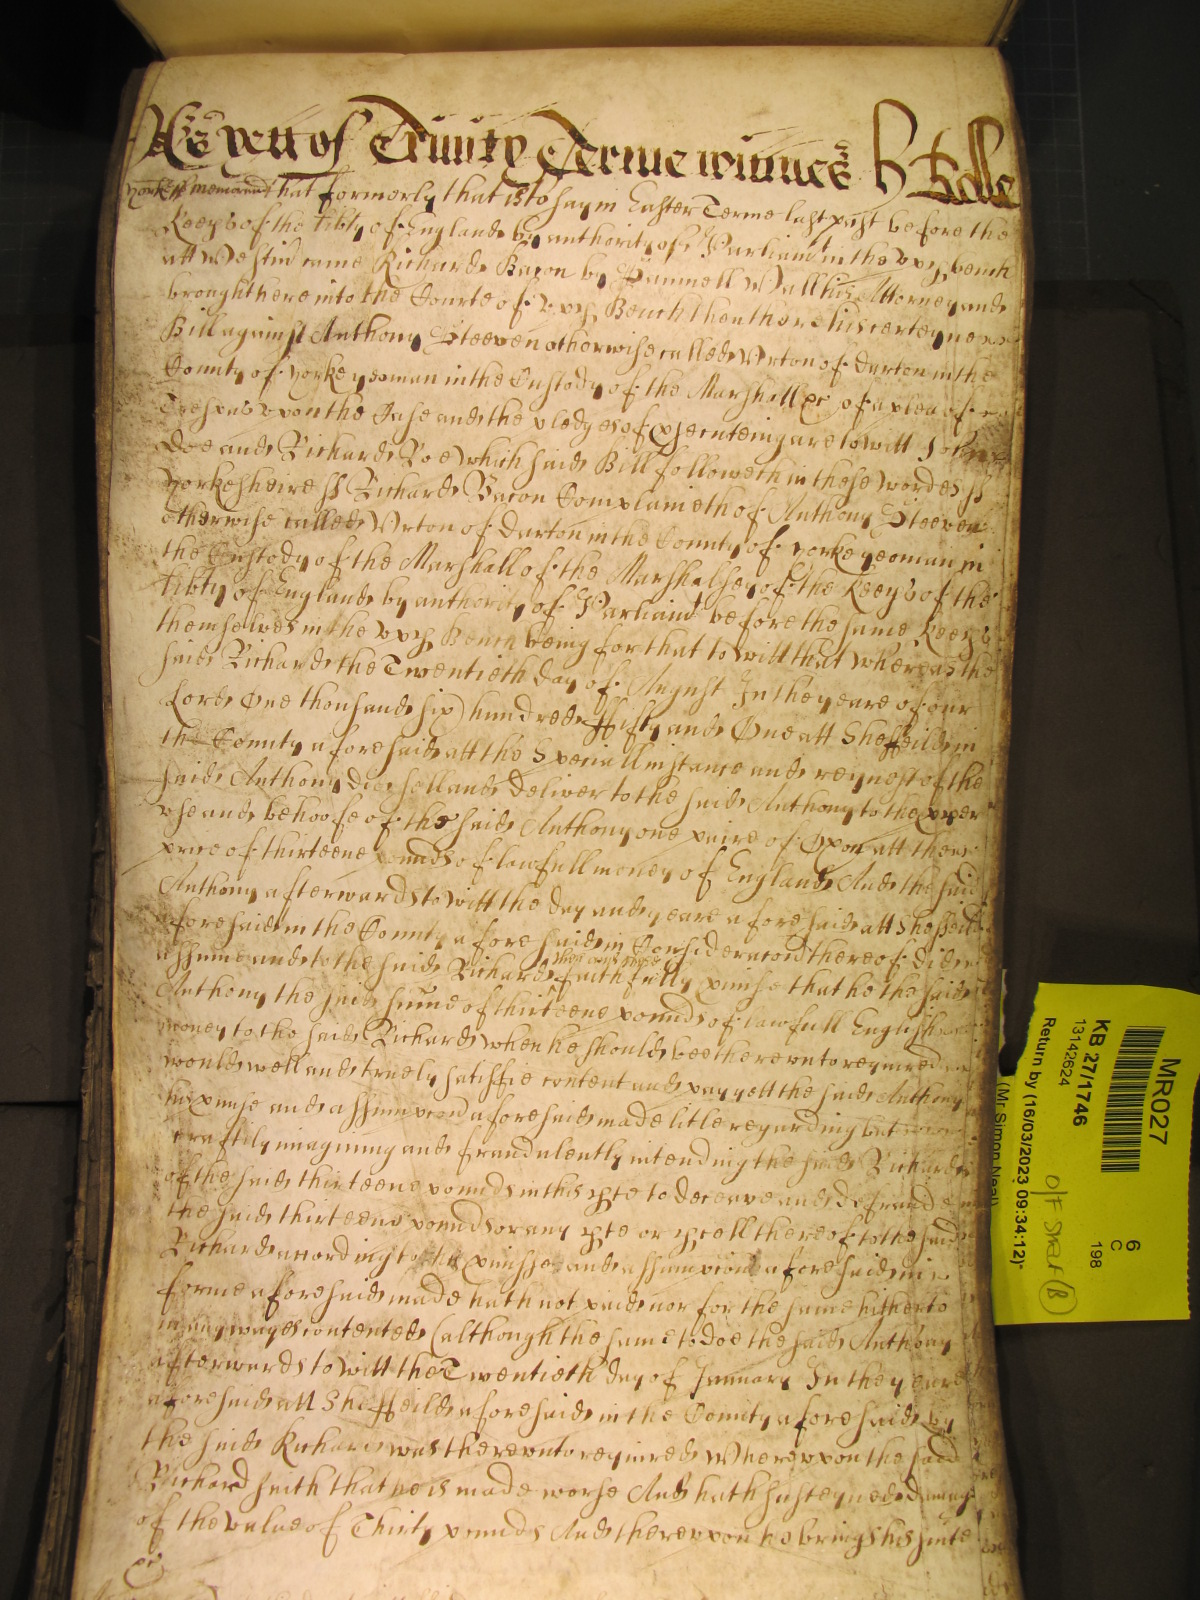 As yett of Trinity Terme witnes H Rolle
Yorkess memorand that formerly that is to say in Easter Terme last past before the
Keep's of the lib'ty of England by authority of Parliam't in the upp' bench
att Westm' came Richard Bacon by Samuell Wall his Attorney and
brought here into the Courte of upp' Bench then there his certeyne
Bill against Anthony Steeven otherwise called Wrton of Darton in the
County of Yorke yeoman in the Custody of the Marshall &c of a plea of
Trespas upon the Case and the pledges of p'secuteing are to witt John
Doe and Richard Roe Which said Bill followeth in these wordes ss
Yorkesheire ss Richard Bacon Complaineth of Anthony Steeven
otherwise called Wrton of Darton in the County of Yorke yeoman in
the Custody of the Marshall of the Marshalsey of the Keep's of the
lib'ty of England by authority of Parliam't before the same Keep's
themselves in the upp' Bench being for that to witt that whereas the
said Richard the Twentieth day of August In the yeare of our
Lord One thousand six hundred ffifty and One att Sheffeild in
the County aforesaid att the Speciall instance and request of the
said Anthony did sell and deliver to the said Anthony to the proper
use and behoofe of the said Anthony one paire of Oxon att the
price of thirteene pounds of lawfull money of England And the said
Anthony afterwards to witt the day and yeare aforesaid att Sheffeild
aforesaid in the County aforesaid in Consideracon thereof did
assume and to the said Richard then and there faithfully p'mise that he the said
Anthony the said summe of thirteene pounds of lawfull English
money to the said Richard when he should bee thereunto required
would well and truely satisfie content and pay yett the said Anthony
his p'mise and assumpcon aforesaid made litle regarding but
craftily imagining and fraudulently intending the said Richard
of the said thirteene pounds in this p'te to deceave and defraude
the said thirteene pounds or any p'te or p'cell thereof to the said
Richard according to his p'misse and assumpcon aforesaid in
forme aforesaid made hath not paid nor for the same hitherto
in any wayes contented (although the same to doe the said Anthony
afterwards to witt the Twentieth day of January In the yeare
aforesaid att Sheffeild aforesaid in the County aforesaid by
the said Richard was thereunto required Whereupon the said
Richard saith that he is made worse And hath susteyned damage
of the value of Thirty pounds And thereupon he brings his suite
&c
MR027
KB 27/1746
13142624
Return by (16/03/2023 09:34:12)
(Mr Simon Neal)
6
C
198